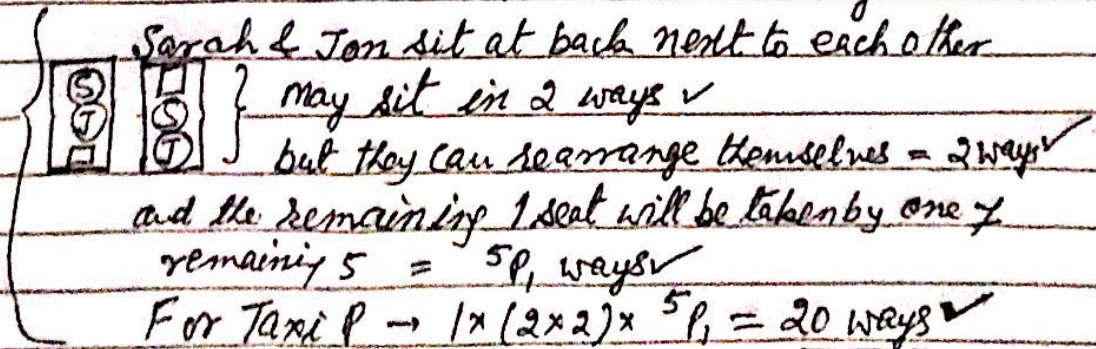 Sarah & Jon sit at back next to each other
S J S J } may sit in 2 ways ✓
but they can rearrange themselves = 2 ways ✓
and the remaining 1 seat will be taken by one of
remaining 5 = ⁵P₁ ways ✓
For Taxi P → 1 x (2 x 2) x ⁵P₁ = 20 ways ✓